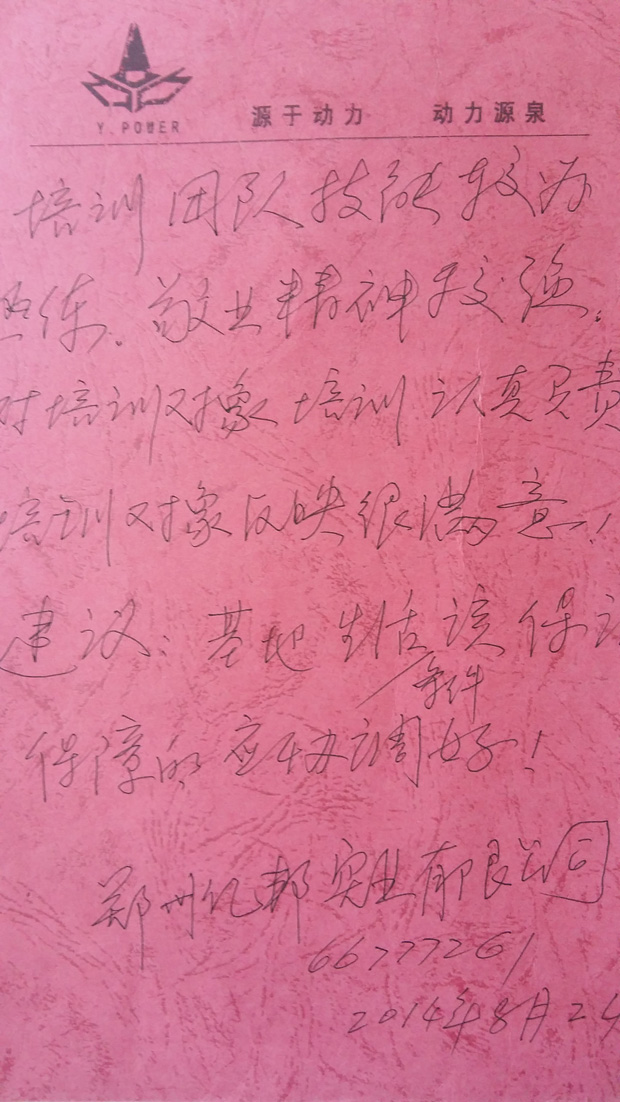 Y.POWER 源于动力 动力源泉
培训团队技能较为
练。敬业精神较强。
对培训对象培训认真负责
培训对象反映很满意!
建议:基地生活该保
条件
保障的应协调好!
郑州亿邦实业有限公司
66777261
2014年8月2